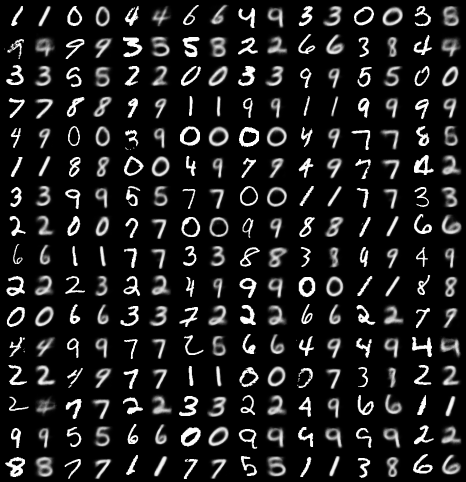 1 1 0 0 4 4 6 6 4 9 3 3 0 0 3 8
9 9 9 9 3 5 5 8 2 2 6 6 3 8 4 4
3 3 5 5 2 2 0 0 3 3 9 9 5 5 0 0
7 7 8 8 9 9 1 1 9 9 1 1 9 9 9 9
4 9 0 0 3 9 0 0 0 0 4 9 7 7 8 5
1 1 8 8 0 0 4 9 7 9 4 9 7 7 4 2
3 3 9 9 5 5 7 7 0 0 1 1 7 7 3 3
2 2 0 0 7 7 0 0 9 9 8 8 1 1 6 6
6 6 1 1 7 7 3 3 8 8 3 8 9 9 4 9
2 2 2 3 2 2 4 9 9 9 0 0 1 1 8 8
0 0 6 6 3 3 7 2 2 2 6 6 2 2 7 9
4 4 9 9 7 7 2 5 6 6 4 9 4 9 4 4
2 2 4 9 7 7 1 1 0 0 0 7 3 3 2 2
2 4 7 7 2 2 3 3 2 2 4 9 6 6 1 1
9 9 5 5 6 6 0 0 9 9 9 9 9 9 2 2
8 8 7 7 1 1 7 7 5 5 1 1 3 8 6 6